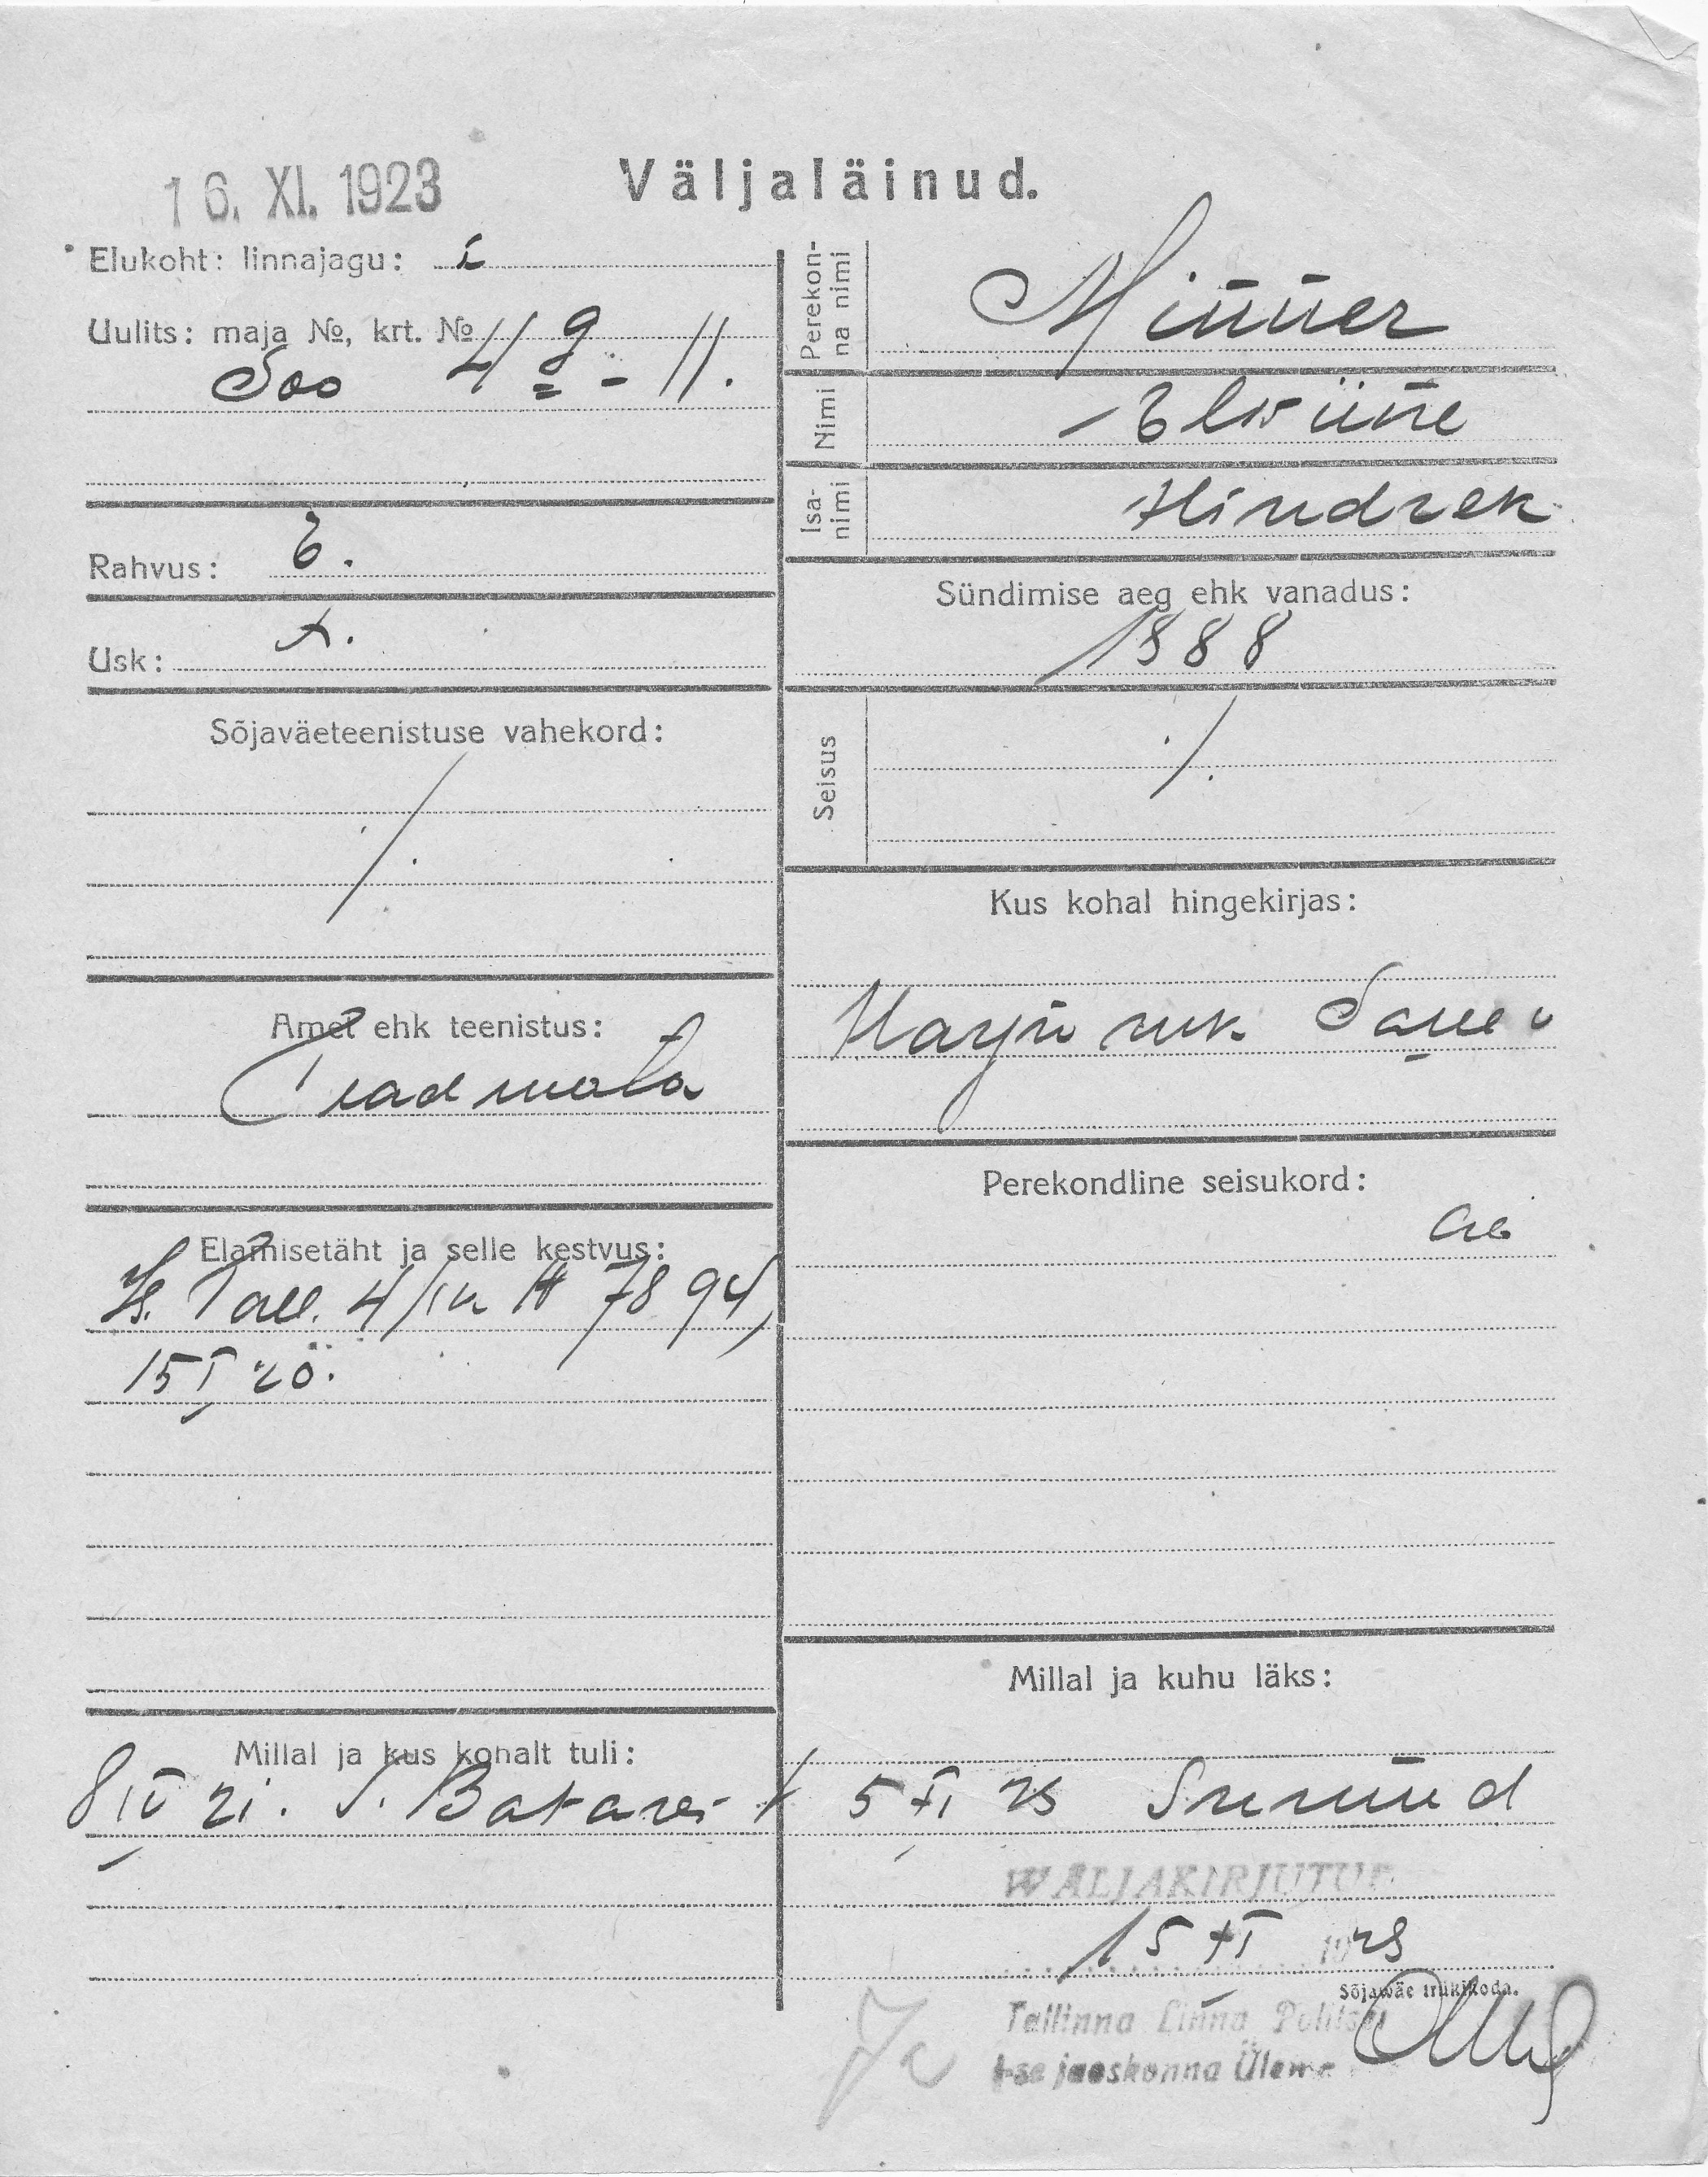 16. XI. 1923
Väljaläinud.
Elukoht: linnajagu: I
Uulits: maja №, krt. №
Soo 4 9 - 11.
Rahvus: E.
Usk:
Sõjaväeteenistuse vahekord:
./.
Amet ehk teenistus:
Teadmata
Elamisetäht ja selle kestvus:
Is. Tall. 4/ № 7894
15 I 20.
Millal ja kus kohalt tuli:
8 IV 21. S. Batarei
Perekon-
na nimi
Minner
Nimi
Elwiine
Isa-
nimi
Hindrek
Sündimise aeg ehk vanadus:
1888
Seisus
./.
Kus kohal hingekirjas:
Harju mk.
Perekondline seisukord:
Millal ja kuhu läks:
5 XI 23 Surnud
WÄLJAKIRJUTUD
15 XI 1923
Sõjawäe trükikoda.
Tallinna Linna Politsei
I-se jaoskonna Ülem